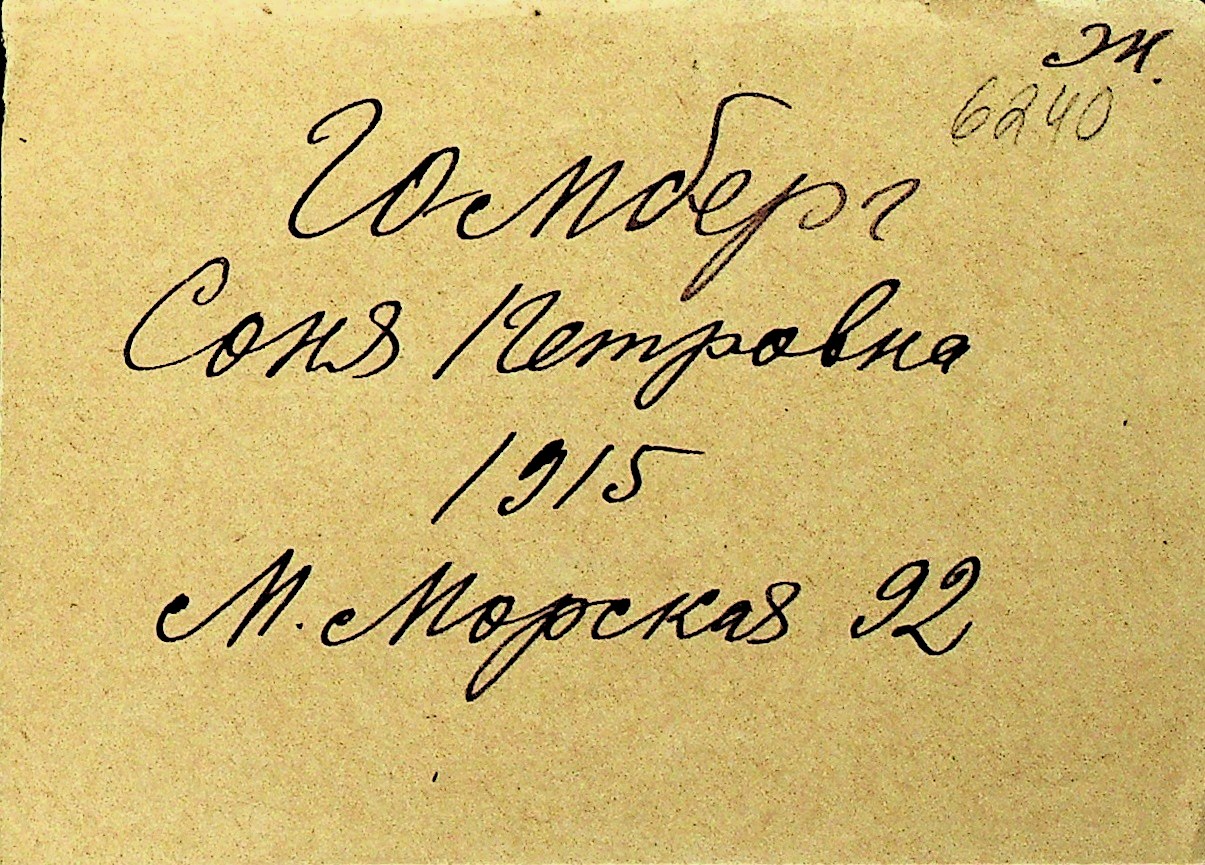 Ж.
6240
Гомберг
Соня Петровна
1915
М. Морская 92